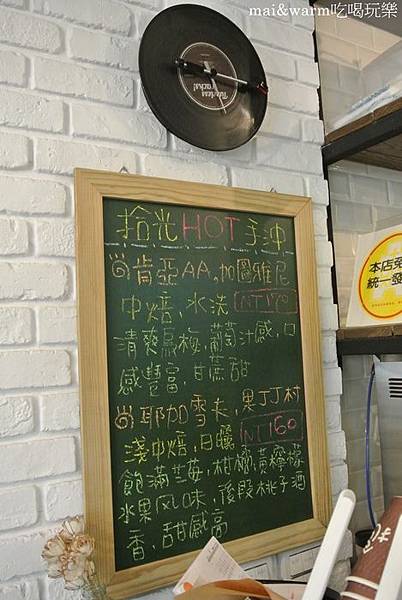 mai&warm吃喝玩樂
拾光HOT手沖
肯亞AA,加圖雅尼
中焙,水洗 NT170
清爽烏梅,葡萄汁感,口
感豐富,甘蔗甜
耶加雪夫,果丁丁村
淺中焙,日曬 NT160
飽滿莓,柑橘,黃檸檬
水果風味,後段桃子酒
香,甜感高
本店免
統一發